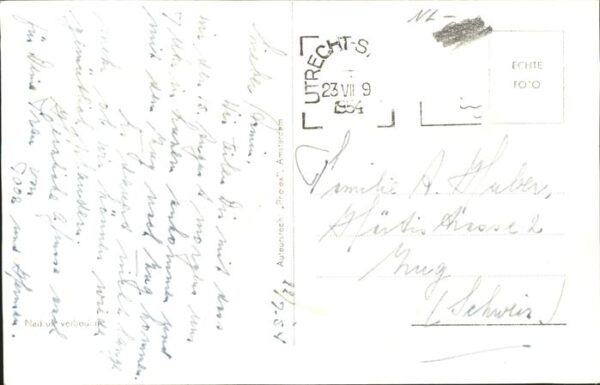 22/7-54
Lieber Armin.
Wir teilen Dir mit dass
wir den 15. August morgens um
7 Uhr in ankommen und
mit dem Zug nach Zug kommen.
Es dauert nicht lange
mehr ob wir können wieder
gemütlich plaudern.
Herzliche Grüsse und
für Deine Frau von
Toon und
Nadruk verboden
Auteursrecht „Protex", Amsterdam
NL-
UTRECHT-S.
23 VII 9
1954
ECHTE
FOTO
Familie A. Huber,
strasse 2
Zug
(Schweiz)